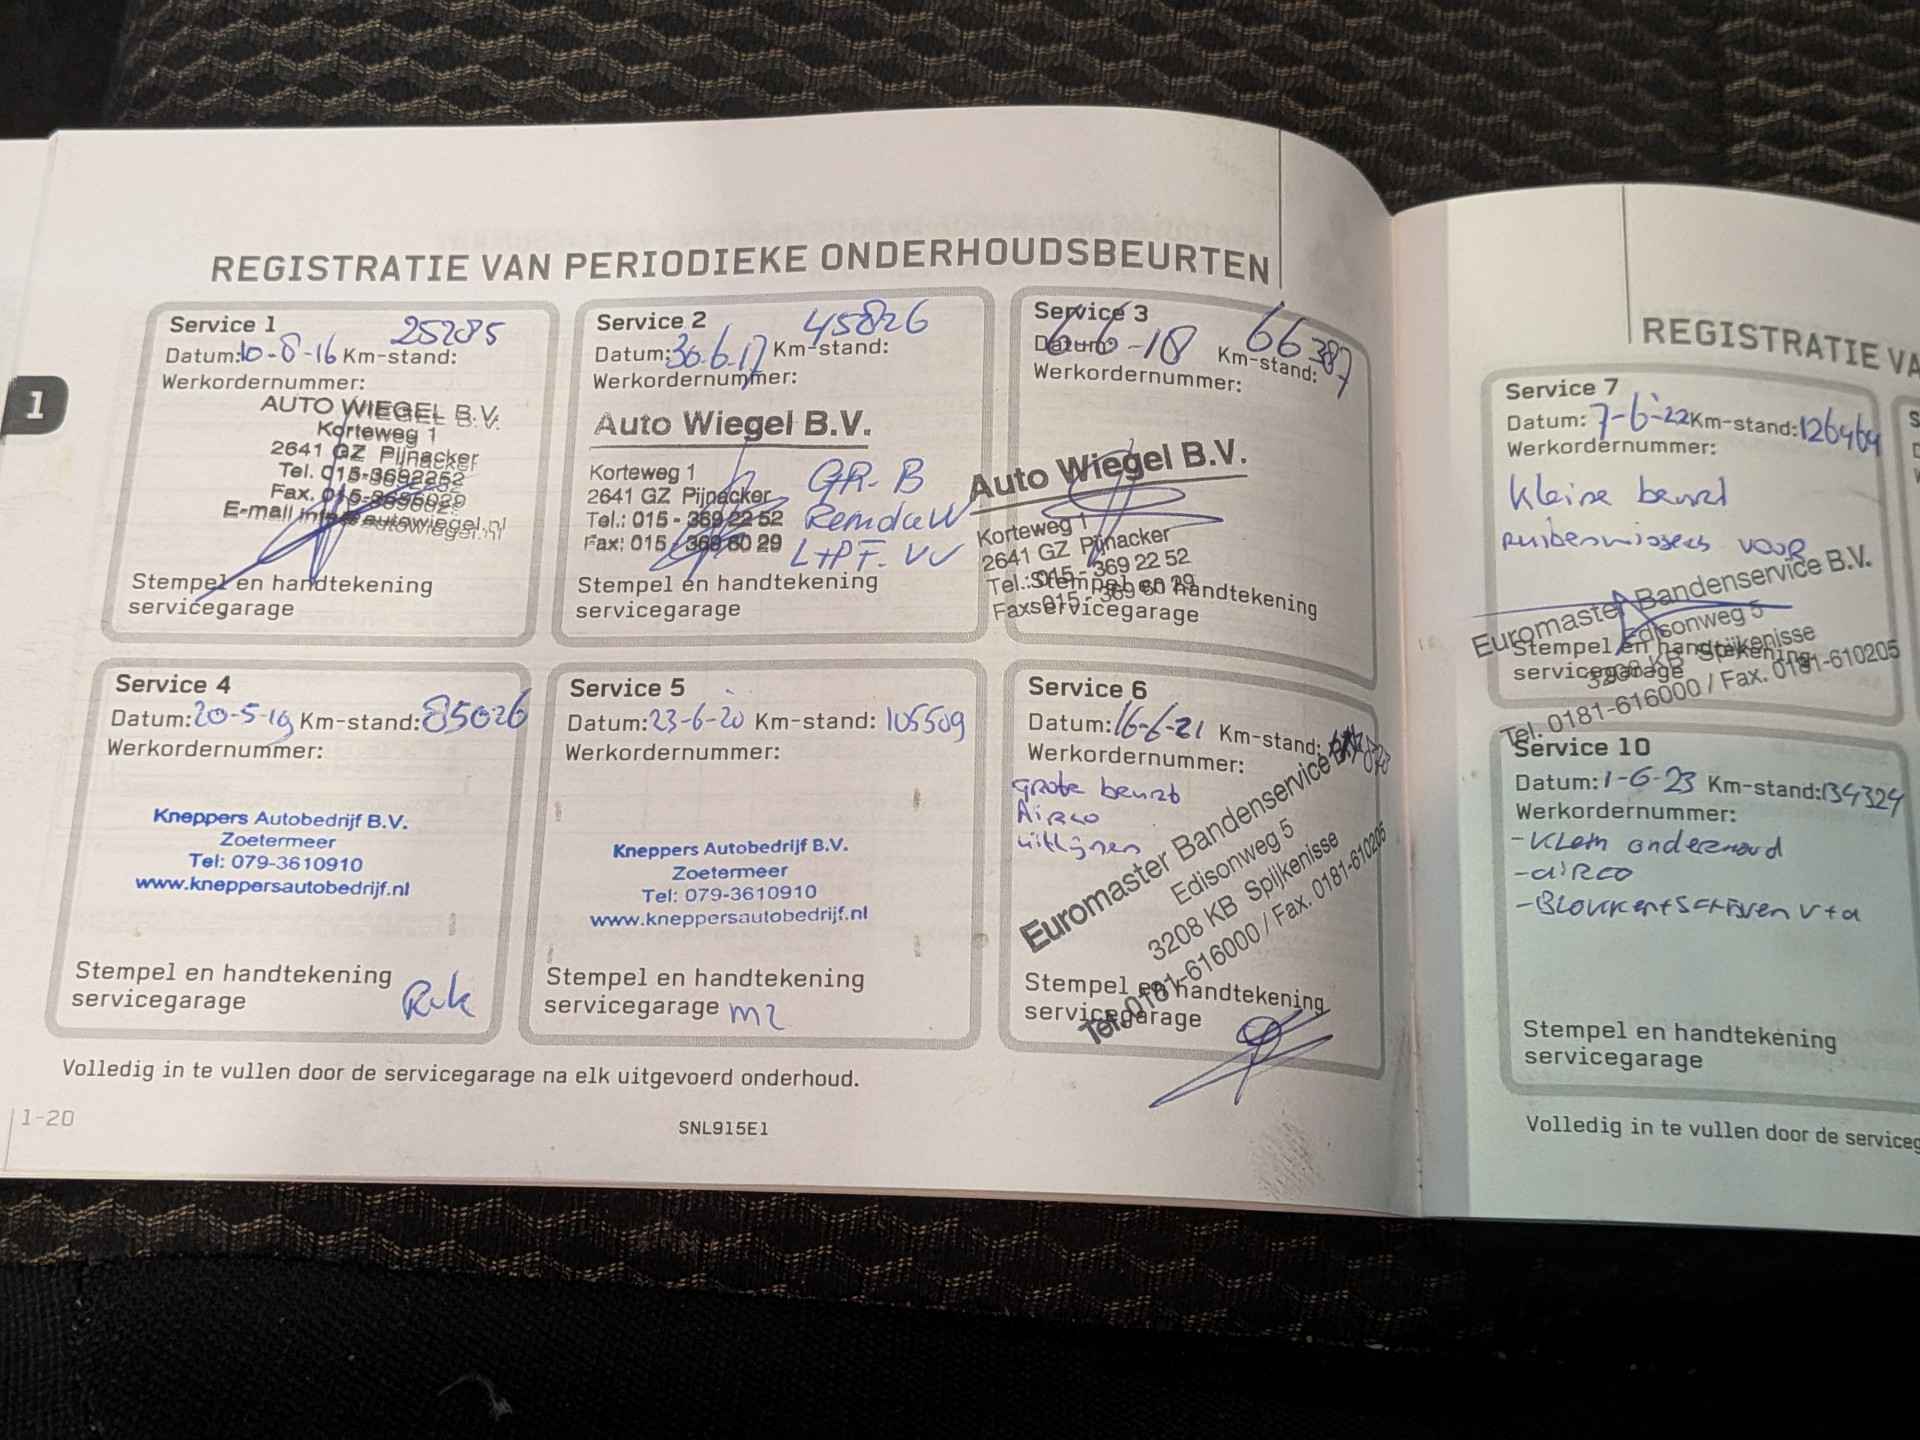 REGISTRATIE VAN PERIODIEKE ONDERHOUDSBEURTEN
1
Service 1
25285
Datum: 10-8-16 Km-stand:
Werkordernummer:
AUTO WIEGEL B.V.
Korteweg 1
2641 GZ Pijnacker
Tel. 015-3692252
Fax. 015-3696029
E-mail info@autowiegel.nl
Stempel en handtekening
servicegarage
Service 2
45826
Datum: 30-6-17 Km-stand:
Werkordernummer:
Auto Wiegel B.V.
Korteweg 1
2641 GZ Pijnacker
Tel.: 015 - 369 22 52
Fax: 015 - 369 60 29
GR-B
L+PF. VV
Stempel en handtekening
servicegarage
Service 3
66387
Datum: 6-6-18 Km-stand:
Werkordernummer:
Auto Wiegel B.V.
Korteweg 1
2641 GZ Pijnacker
Tel.: 015 - 369 22 52
Fax: 015 - 369 60 29
Stempel en handtekening
servicegarage
Service 4
Datum: 20-5-19 Km-stand: 85026
Werkordernummer:
Kneppers Autobedrijf B.V.
Zoetermeer
Tel: 079-3610910
www.kneppersautobedrijf.nl
Stempel en handtekening
servicegarage
Service 5
Datum: 23-6-20 Km-stand: 105509
Werkordernummer:
Kneppers Autobedrijf B.V.
Zoetermeer
Tel: 079-3610910
www.kneppersautobedrijf.nl
Stempel en handtekening
servicegarage
Service 6
Datum: 16-6-21 Km-stand:
Werkordernummer:
grote beurt
Airco
uitlijnen
Euromaster Bandenservice B.V.
Edisonweg 5
3208 KB Spijkenisse
Tel. 0181-616000 / Fax. 0181-610205
Stempel en handtekening
servicegarage
Volledig in te vullen door de servicegarage na elk uitgevoerd onderhoud.
1-20
SNL915E1
REGISTRATIE VA
Service 7
Datum: 7-6-22 Km-stand: 126464
Werkordernummer:
Kleine beurt
ruitenwissers voor
Euromaster Bandenservice B.V.
Edisonweg 5
3208 KB Spijkenisse
Tel. 0181-616000 / Fax. 0181-610205
Stempel en handtekening
servicegarage
Service 10
Datum: 1-6-23 Km-stand: 134324
Werkordernummer:
- Klein onderhoud
- aiRco
- Blokken+Schijven v+a
Stempel en handtekening
servicegarage
Volledig in te vullen door de serviceg